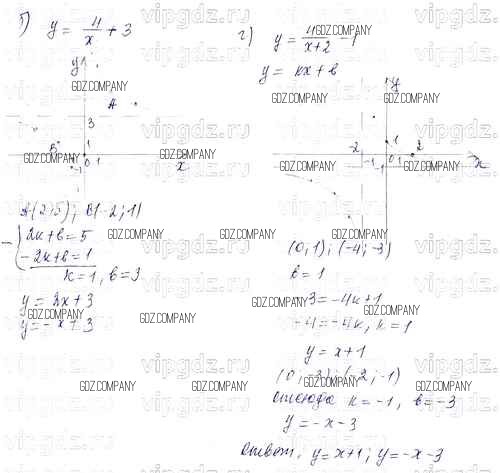 б) y = 4/x + 3
y
A
3
B
1
-1
0 1
x
A(2;5); B(-2;1)
2к+в=5
-2к+в=1
к=1, в=3
y = 2x+3
y=-x+3
г) y = 4/(x+2) - 1
y = кx+в
y
-2
1
2
-1
-1
0 1
x
(0,1); (-4;-3)
в=1
-3=-4к+1
-4=-4к, к=1
y=x+1
(0;-3); (-2;-1)
отсюда к=-1, в=-3
y=-x-3
Ответ. y=x+1; y=-x-3
vipgdz.ru
GDZ.COMPANY